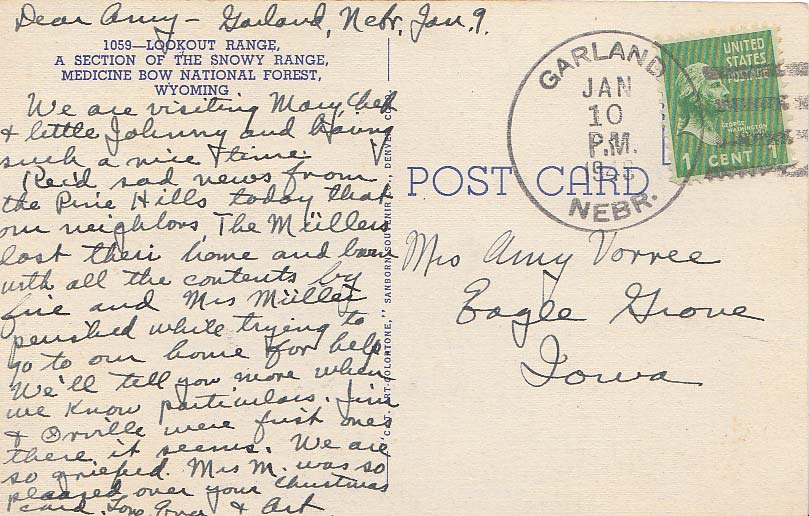 Dear Amy – Garland, Nebr. Jan. 9.
1059—LOOKOUT RANGE,
A SECTION OF THE SNOWY RANGE,
MEDICINE BOW NATIONAL FOREST,
WYOMING
We are visiting Mary, Chet
& little Johnny and having
such a nice time.
Rec'd. sad news from
the Pine Hills today that
our neighbors, The Müllers
lost their home and barn
with all the contents by
fire and Mrs Müller
perished while trying to
go to our home for help
We'll tell you more when
we know particulars. Jim
& Orville were first ones
there it seems. We are
so grieved. Mrs M. was so
pleased over your Christmas
card. Love & Art
"C.T. ART-COLORTONE," SANBORN SOUVENIR CO., DENVER, COLO.
POST CARD
GARLAND
JAN
10
P.M.
NEBR.
UNITED
STATES
POSTAGE
GEORGE
WASHINGTON
1 CENT 1
Mrs Amy Vorree
Eagle Grove
Iowa